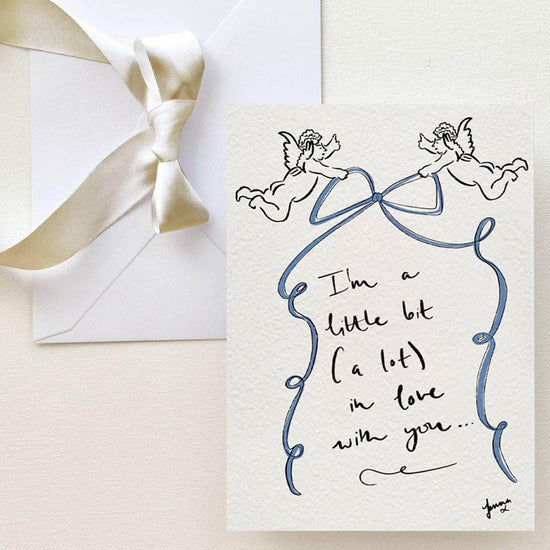 I'm a
little bit
(a lot)
in love
with you...
Jenna